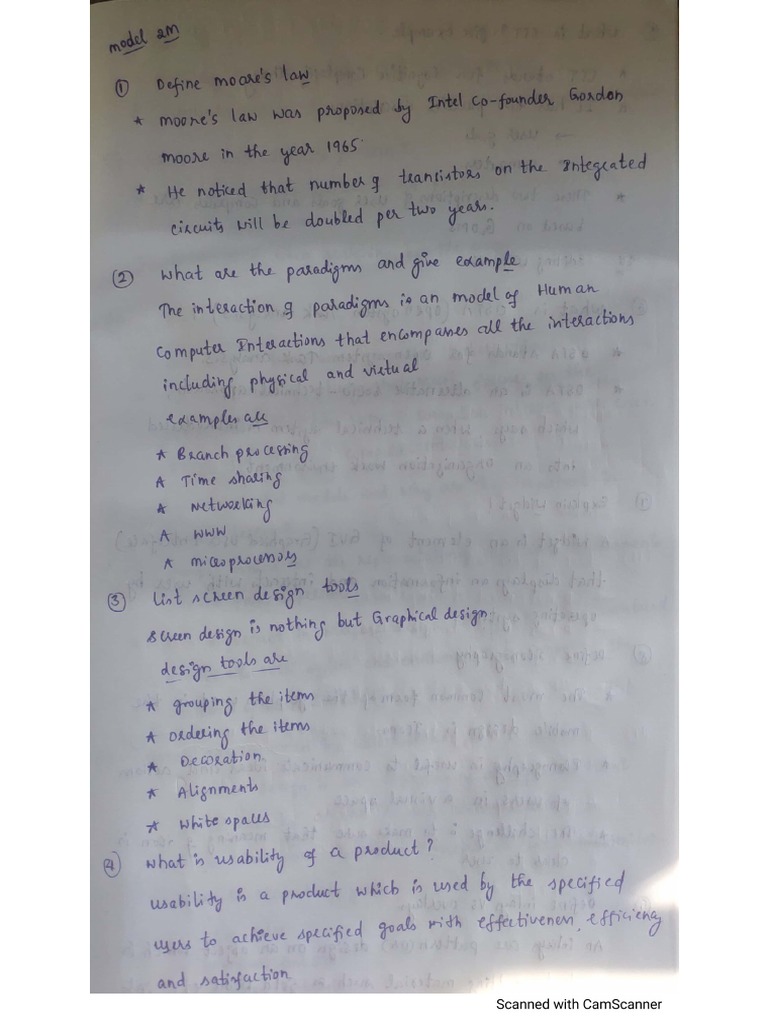 model 2M
① Define moore's law
* moore's law was proposed by Intel co-founder Gordon
moore in the year 1965.
* He noticed that number of trancistors on the Integrated
circuits will be doubled per two years.
② what are the paradigms and give example
The interaction of paradigms is an model of Human
computer Interactions that encompasses all the interactions
including physical and virtual
examples are
* Branch processing
* Time sharing
* Networking
* WWW
* microprocessors
③ List screen design tools
screen design is nothing but Graphical design
design tools are
* grouping the items
* ordering the items
* Decoration
* Alignments
* White spaces
④ what is usability of a product?
usability is a product which is used by the specified
users to achieve specified goals with effectiveness, efficiency
and satisfaction
Scanned with CamScanner